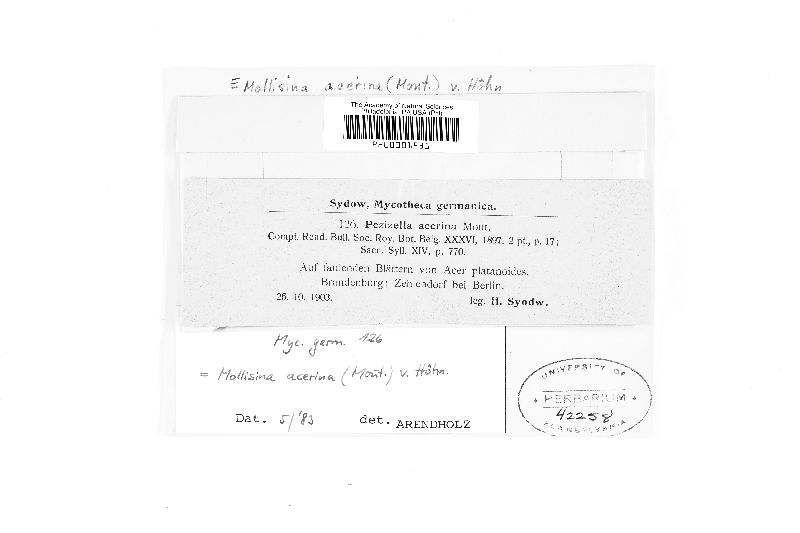 ≡ Mollisina acerina (Mont.) v. Höhn
The Academy of Natural Sciences
Philadelphia, PA USA (PH)
Sydow, Mycotheca germanica.
126. Pezizella acerina Mont.
Compt. Rend. Bull. Soc. Roy. Bot. Belg. XXXVI, 1897, 2 pt., p. 17;
Sacc. Syll. XIV, p. 770.
Auf faulenden Blättern von Acer platanoides.
Brandenburg: Zehlendorf bei Berlin.
26. 10. 1903. leg. H. Syodw.
Myc. germ. 126
= Mollisina acerina (Mont.) v. Höhn.
Dat. 5/'83 det. ARENDHOLZ
UNIVERSITY OF
HERBARIUM
42258
PENNSYLVANIA